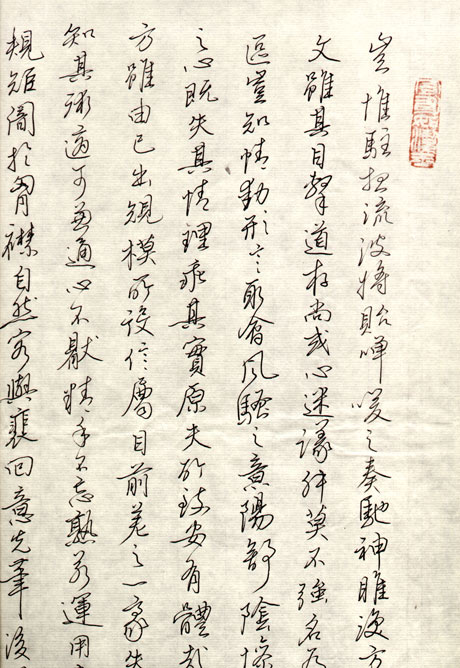 豈惟駐想流波將貽嘽噯之奏馳神睢渙方
文雖其目擊道存尚或心迷議舛莫不強名為
區豈知情動形言取會風騷之意陽舒陰慘
之心既失其情理乖其實原夫所致安有體哉
方雖由己出規模所設信屬目前差之一豪失
知其術適可兼通心不厭精手不忘熟若運用
規矩闇於胸襟自然容與裴回意先筆後